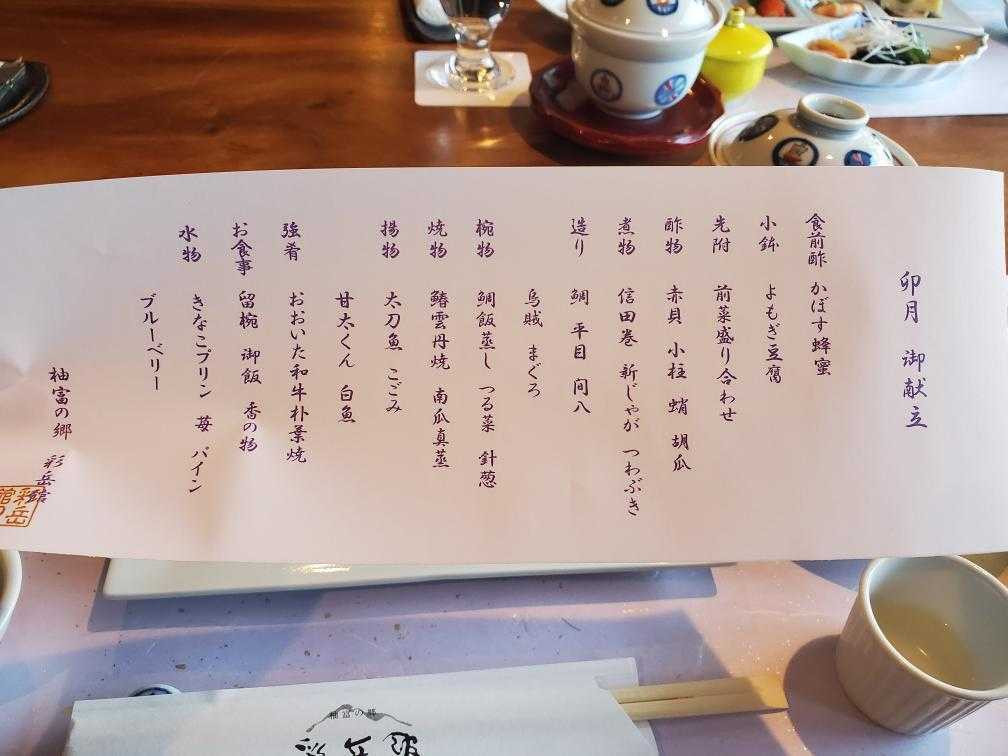 卯月 御献立
食前酢 かぼす蜂蜜
小鉢 よもぎ豆腐
先附 前菜盛り合わせ
酢物 赤貝 小柱 蛸 胡瓜
煮物 信田巻 新じゃが つわぶき
造り 鯛 平目 間八
烏賊 まぐろ
椀物 鯛飯蒸し つる菜 針葱
焼物 鰆雲丹焼 南瓜真蒸
揚物 太刀魚 こごみ
甘太くん 白魚
強肴 おおいた和牛朴葉焼
お食事 留椀 御飯 香の物
水物 きなこプリン 苺 パイン
ブルーベリー
柚富の郷 彩岳館
彩岳館
柚富の郷
彩岳館